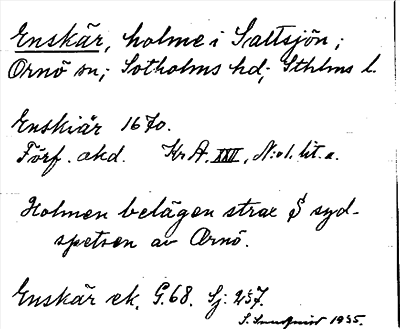 Enskär, holme i Saltsjön;
Ornö sn; Sotholms hd; Sthlms l.
Enskiär 1670.
Förf. okd. Kr A. XXII, N:o1. lit. a.
Holmen belägen strax S syd-
spetsen av Ornö.
Enskär ek. G.68. Sj: 257.
1935.